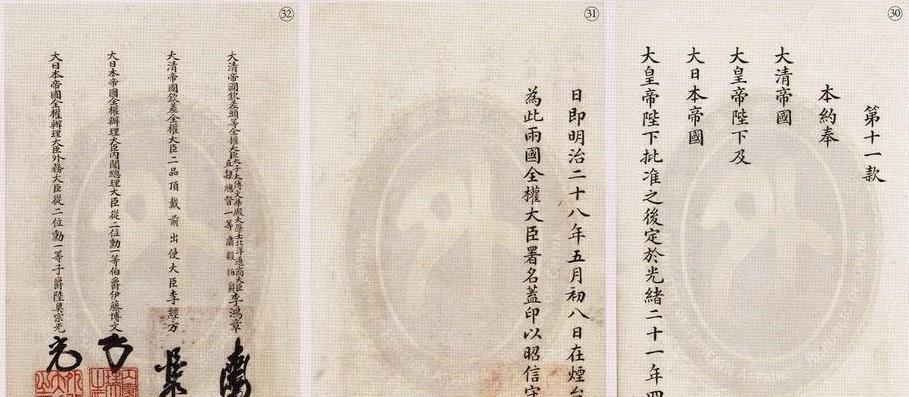 ㉚
第十一款
本約奉
大清帝國
大皇帝陛下及
大日本帝國
大皇帝陛下批准之後定於光緒二十一年四
㉛
日即明治二十八年五月初八日在煙台
為此兩國全權大臣署名蓋印以昭信守
㉜
大清帝國欽差頭等全權大臣太子太傅文華殿大學士北洋通商大臣直隸總督一等肅毅伯爵李鴻章
大清帝國欽差全權大臣二品頂戴前出使大臣李經方
大日本帝國全權辦理大臣內閣總理大臣從二位勳一等伯爵伊藤博文
大日本帝國全權辦理大臣外務大臣從二位勳一等子爵陸奧宗光